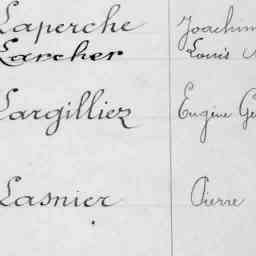 Laperche Joachim
Larcher Louis
Largilliez Eugène Ge
Lasnier Pierre